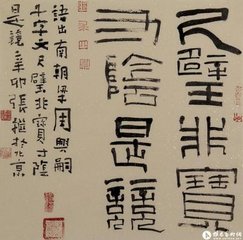 尺璧非寶
寸陰是競
語出南朝梁周興嗣
千字文尺璧非寶寸陰
是競辛卯張繼於京